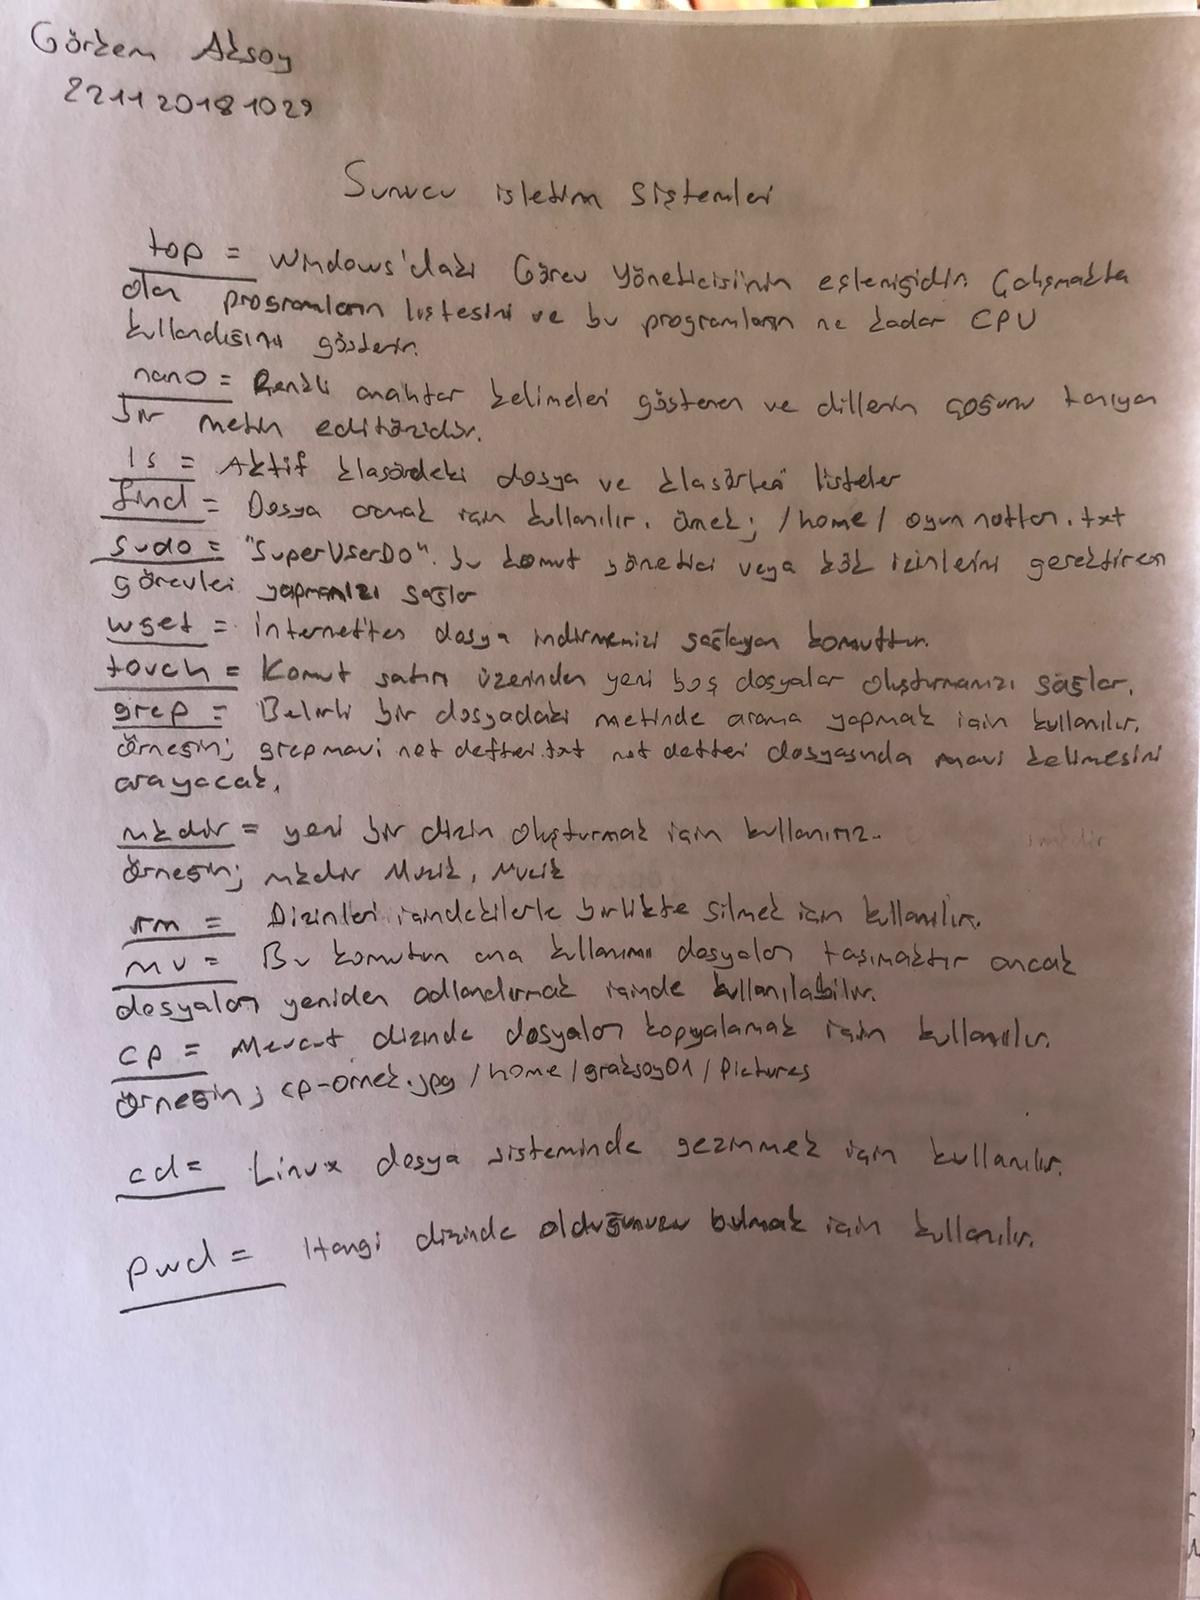 Görkem Aksoy
221120181029
Sunucu işletim Sistemleri
top = Windows'daki Görev Yöneticisi'nin eşleniğidir. Çalışmakta
olan programların listesini ve bu programların ne kadar CPU
kullandığını gösterir.
nano = Renkli anahtar kelimeleri gösteren ve dillerin çoğunu tanıyan
bir metin editörüdür.
ls = Aktif klasördeki dosya ve klasörleri listeler
find = Dosya aramak için kullanılır. örnek; /home/ oyun notları.txt
sudo = "SuperUserDo". bu komut yönetici veya kök izinlerini gerektiren
görevleri yapmanızı sağlar
wget = internet'ten dosya indirmemizi sağlayan komuttur.
touch = Komut satırı üzerinden yeni boş dosyalar oluşturmanızı sağlar.
grep = Belirli bir dosyadaki metinde arama yapmak için kullanılır.
örneğin; grep mavi not defteri.txt not defteri dosyasında mavi kelimesini
arayacak.
mkdir = yeni bir dizin oluşturmak için kullanırız..
örneğin; mkdir Muzik, Muzik
rm = Dizinleri içindekilerle birlikte silmek için kullanılır.
mv = Bu komutun ana kullanımı dosyaları taşımaktır ancak
dosyaları yeniden adlandırmak içinde kullanılabilir.
cp = Mevcut dizinde dosyaları kopyalamak için kullanılır.
örneğin; cp-ornek.jpg /home/graksoy01/Pictures
cd = Linux dosya sisteminde gezinmek için kullanılır.
pwd = Hangi dizinde olduğunuzu bulmak için kullanılır.